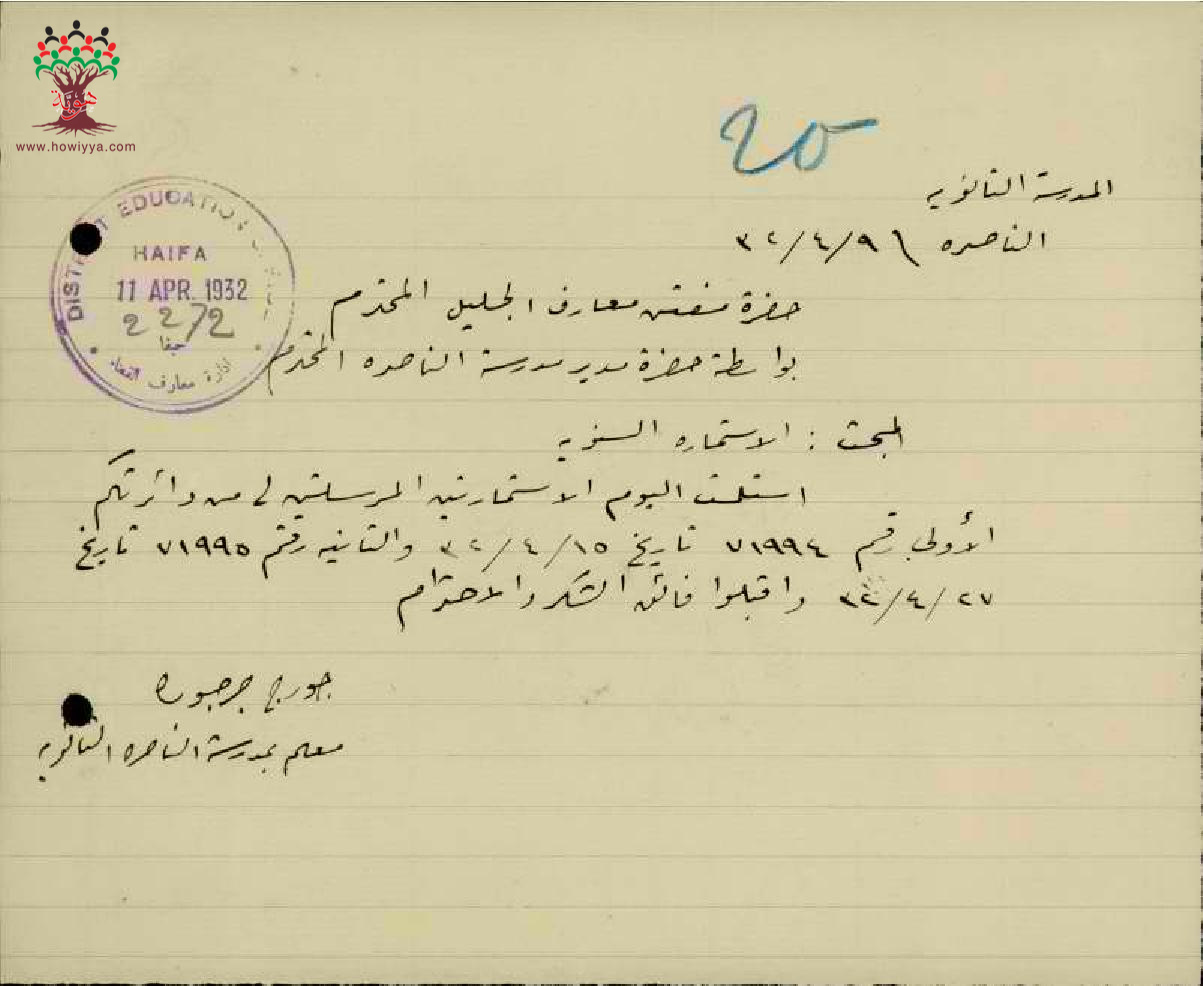 هوية
www.howiyya.com
٢٥
المدرسة الثانويه
الناصره ٩/٤/٣٢
DISTRICT EDUCATION
HAIFA
11 APR 1932
2272
حيفا
ادارة معارف القضاء
حضرة مفتش معارف الجليل المحترم
بواسطة حضرة مدير مدرسة الناصره المحترم
المبحث : الاستماره السنويه
استلمت اليوم الاستمارتين المرسلتين لي من دائرتكم
الأولى رقم ٧١٩٩٤ تاريخ ١٥/٤/٣٢ والثانيه رقم ٧١٩٩٥ تاريخ
٢٧/٤/٣٢ واقبلوا فائق الشكر والاحترام
جورج جرجوره
معلم بمدرسة الناصره الثانويه